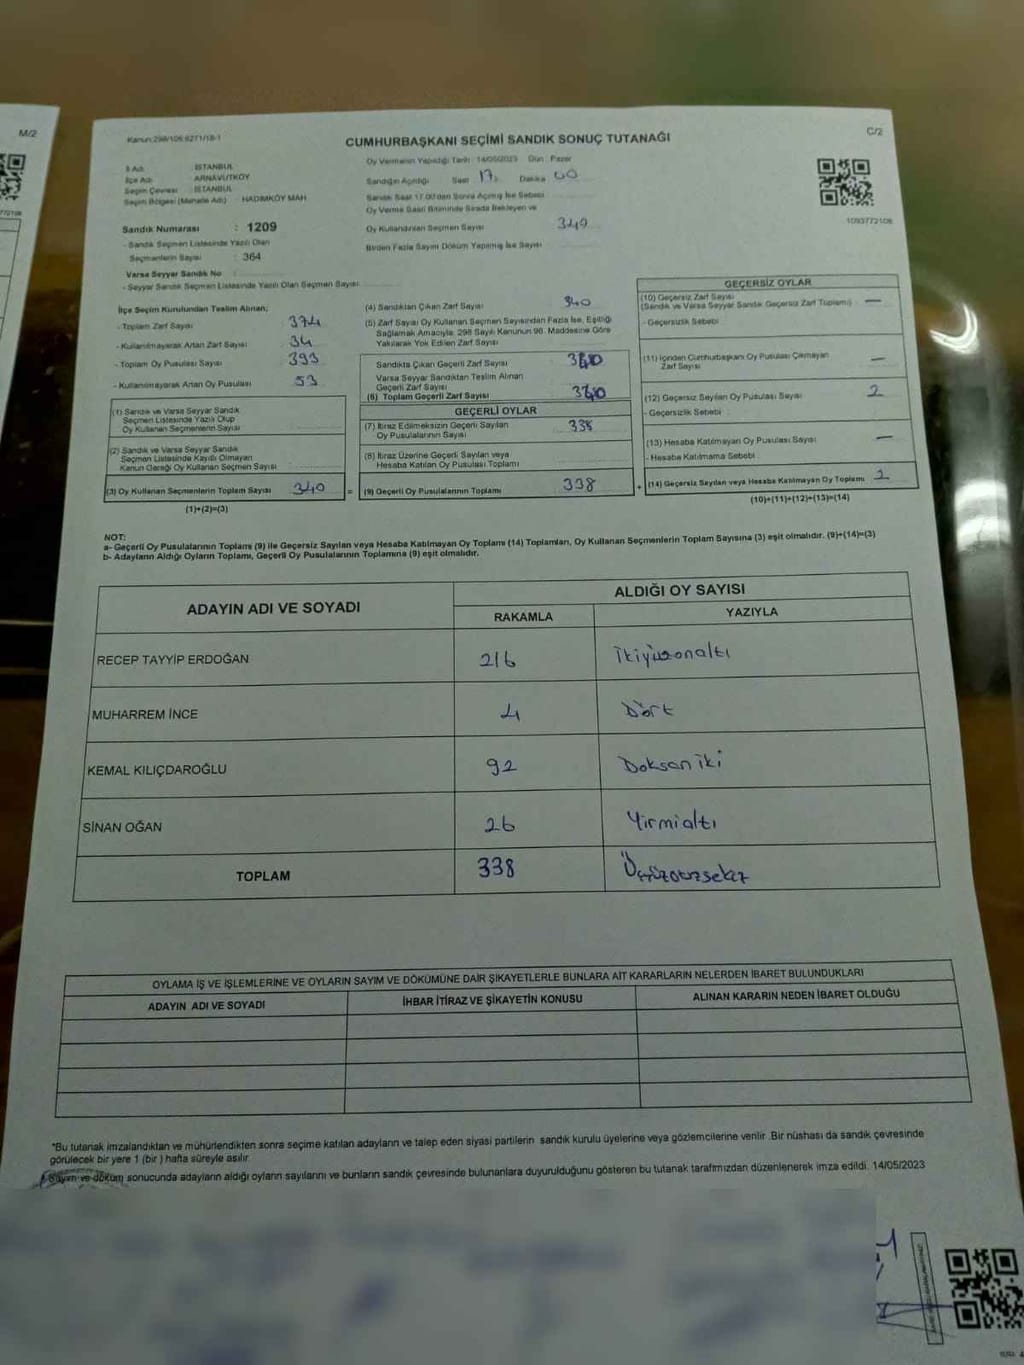 M/2
Kanun:298/105,6271/18-1
CUMHURBAŞKANI SEÇİMİ SANDIK SONUÇ TUTANAĞI
C/2
İl Adı : İSTANBUL
İlçe Adı : ARNAVUTKÖY
Seçim Çevresi : İSTANBUL
Seçim Bölgesi (Mahalle Adı) : HADIMKÖY MAH
Sandık Numarası : 1209
- Sandık Seçmen Listesinde Yazılı Olan
Seçmenlerin Sayısı : 364
Varsa Seyyar Sandık No :
- Seyyar Sandık Seçmen Listesinde Yazılı Olan Seçmen Sayısı
Oy Vermenin Yapıldığı Tarih : 14/05/2023 Gün : Pazar
Sandığın Açıldığı Saat : 17: Dakika : 00
Sandık Saat 17.00'den Sonra Açılmış İse Sebebi
Oy Verme Saati Bitiminde Sırada Bekleyen ve
Oy Kullandırılan Seçmen Sayısı
Birden Fazla Sayım Döküm Yapılmış İse Sayısı
1093772108
İlçe Seçim Kurulundan Teslim Alınan;
- Toplam Zarf Sayısı 374
- Kullanılmayarak Artan Zarf Sayısı 34
- Toplam Oy Pusulası Sayısı 393
- Kullanılmayarak Artan Oy Pusulası 53
(1) Sandık ve Varsa Seyyar Sandık
Seçmen Listesinde Yazılı Olup
Oy Kullanan Seçmenlerin Sayısı
(2) Sandık ve Varsa Seyyar Sandık
Seçmen Listesinde Kayıtlı Olmayan
Kanun Gereği Oy Kullanan Seçmen Sayısı
(3) Oy Kullanan Seçmenlerin Toplam Sayısı 340 =
(1)+(2)=(3)
(4) Sandıktan Çıkan Zarf Sayısı 340
(5) Zarf Sayısı Oy Kullanan Seçmen Sayısından Fazla İse, Eşitliği
Sağlamak Amacıyla, 298 Sayılı Kanunun 98. Maddesine Göre
Yakılarak Yok Edilen Zarf Sayısı
Sandıkta Çıkan Geçerli Zarf Sayısı 340
Varsa Seyyar Sandıktan Teslim Alınan
Geçerli Zarf Sayısı
(6) Toplam Geçerli Zarf Sayısı 340
GEÇERLİ OYLAR
(7) İtiraz Edilmeksizin Geçerli Sayılan
Oy Pusulalarının Sayısı 338
(8) İtiraz Üzerine Geçerli Sayılan veya
Hesaba Katılan Oy Pusulası Toplamı
(9) Geçerli Oy Pusulalarının Toplamı 338 +
GEÇERSİZ OYLAR
(10) Geçersiz Zarf Sayısı
(Sandık ve Varsa Seyyar Sandık Geçersiz Zarf Toplamı) —
- Geçersizlik Sebebi :
(11) İçinden Cumhurbaşkanı Oy Pusulası Çıkmayan
Zarf Sayısı —
(12) Geçersiz Sayılan Oy Pusulası Sayısı 2
- Geçersizlik Sebebi :
(13) Hesaba Katılmayan Oy Pusulası Sayısı —
- Hesaba Katılmama Sebebi :
(14) Geçersiz Sayılan veya Hesaba Katılmayan Oy Toplamı 2
(10)+(11)+(12)+(13)=(14)
NOT:
a- Geçerli Oy Pusulalarının Toplamı (9) ile Geçersiz Sayılan veya Hesaba Katılmayan Oy Toplamı (14) Toplamları, Oy Kullanan Seçmenlerin Toplam Sayısına (3) eşit olmalıdır. (9)+(14)=(3)
b- Adayların Aldığı Oyların Toplamı, Geçerli Oy Pusulalarının Toplamına (9) eşit olmalıdır.
ADAYIN ADI VE SOYADI ALDIĞI OY SAYISI
RAKAMLA YAZIYLA
RECEP TAYYİP ERDOĞAN 216 İkiyüzonaltı
MUHARREM İNCE 4 Dört
KEMAL KILIÇDAROĞLU 92 Doksan iki
SİNAN OĞAN 26 Yirmialtı
TOPLAM 338 Üçyüzotuzsekiz
OYLAMA İŞ VE İŞLEMLERİNE VE OYLARIN SAYIM VE DÖKÜMÜNE DAİR ŞİKAYETLERLE BUNLARA AİT KARARLARIN NELERDEN İBARET BULUNDUKLARI
ADAYIN ADI VE SOYADI İHBAR İTİRAZ VE ŞİKAYETİN KONUSU ALINAN KARARIN NEDEN İBARET OLDUĞU
*Bu tutanak imzalandıktan ve mühürlendikten sonra seçime katılan adayların ve talep eden siyasi partilerin sandık kurulu üyelerine veya gözlemcilerine verilir .Bir nüshası da sandık çevresinde
görülecek bir yere 1 (bir ) hafta süreyle asılır.
Sayım ve döküm sonucunda adayların aldığı oyların sayılarını ve bunların sandık çevresinde bulunanlara duyurulduğunu gösteren bu tutanak tarafımızdan düzenlenerek imza edildi. 14/05/2023